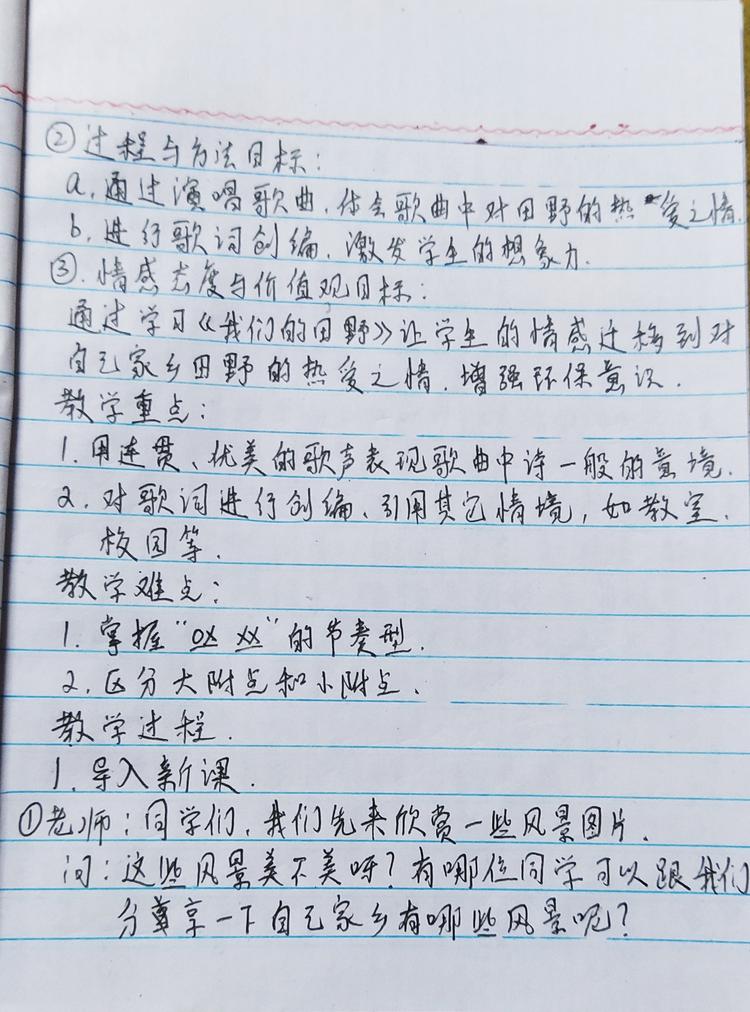 ②过程与方法目标：
a.通过演唱歌曲.体会歌曲中对田野的热爱之情.
b.进行歌词创编.激发学生的想象力.
③.情感态度与价值观目标：
通过学习《我们的田野》让学生的情感迁移到对
自己家乡田野的热爱之情.增强环保意识.
教学重点：
1.用连贯、优美的歌声表现歌曲中诗一般的意境.
2.对歌词进行创编、引用其它情境，如教室.
校园等.
教学难点：
1.掌握“0X XX”的节奏型.
2.区分大附点和小附点.
教学过程.
1.导入新课.
①老师：同学们，我们先来欣赏一些风景图片.
问：这些风景美不美呀？有哪位同学可以跟我们
分享一下自己家乡有哪些风景呢？